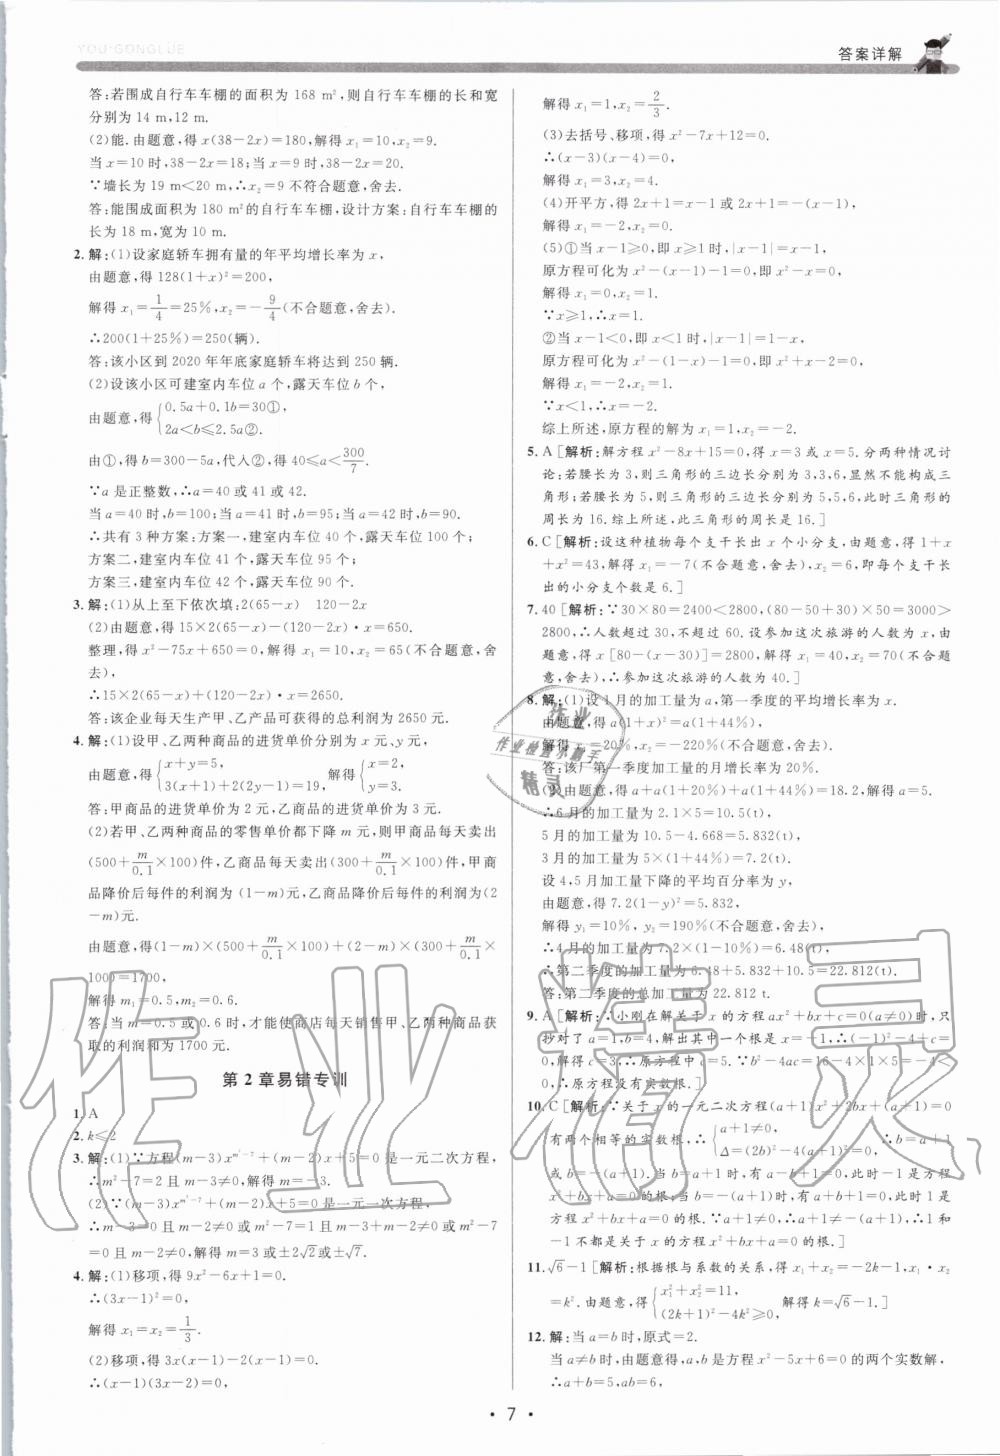 YOU·GONGLÜE
答案详解
答:若围成自行车车棚的面积为 168 m²,则自行车车棚的长和宽
分别为 14 m,12 m.
(2)能.由题意,得 x(38-2x)=180,解得 x₁=10,x₂=9.
当 x=10 时,38-2x=18;当 x=9 时,38-2x=20.
∵墙长为 19 m<20 m,∴x₂=9 不符合题意,舍去.
答:能围成面积为 180 m²的自行车车棚,设计方案:自行车车棚的
长为 18 m,宽为 10 m.
2. 解:(1)设家庭轿车拥有量的年平均增长率为 x,
由题意,得 128(1+x)²=200,
解得 x₁=1/4=25%,x₂=-9/4(不合题意,舍去).
∴200(1+25%)=250(辆).
答:该小区到 2020 年年底家庭轿车将达到 250 辆.
(2)设该小区可建室内车位 a 个,露天车位 b 个,
由题意,得{0.5a+0.1b=30①,
2a<b≤2.5a②.
由①,得 b=300-5a,代入②,得 40≤a<300/7.
∵a 是正整数,∴a=40 或 41 或 42.
当 a=40 时,b=100;当 a=41 时,b=95;当 a=42 时,b=90.
∴共有 3 种方案:方案一,建室内车位 40 个,露天车位 100 个;
方案二,建室内车位 41 个,露天车位 95 个;
方案三,建室内车位 42 个,露天车位 90 个.
3. 解:(1)从上至下依次填:2(65-x) 120-2x
(2)由题意,得 15×2(65-x)-(120-2x)·x=650.
整理,得 x²-75x+650=0,解得 x₁=10,x₂=65(不合题意,舍
去),
∴15×2(65-x)+(120-2x)·x=2650.
答:该企业每天生产甲、乙产品可获得的总利润为 2650 元.
4. 解:(1)设甲、乙两种商品的进货单价分别为 x 元、y 元,
由题意,得{x+y=5,
3(x+1)+2(2y-1)=19,
解得{x=2,
y=3.
答:甲商品的进货单价为 2 元,乙商品的进货单价为 3 元.
(2)若甲、乙两种商品的零售单价都下降 m 元,则甲商品每天卖出
(500+m/0.1×100)件,乙商品每天卖出(300+m/0.1×100)件,甲商
品降价后每件的利润为 (1-m)元,乙商品降价后每件的利润为(2
-m)元.
由题意,得(1-m)×(500+m/0.1×100)+(2-m)×(300+m/0.1×
100)=1700,
解得 m₁=0.5,m₂=0.6.
答:当 m=0.5 或 0.6 时,才能使商店每天销售甲、乙两种商品获
取的利润和为 1700 元.
第 2 章易错专训
1. A
2. k≤2
3. 解:(1)∵方程(m-3)x^(m²-7)+(m-2)x+5=0 是一元二次方程,
∴m²-7=2 且 m-3≠0,解得 m=-3.
(2)∵(m-3)x^(m²-7)+(m-2)x+5=0 是一元一次方程,
∴m-3=0 且 m-2≠0 或 m²-7=1 且 m-3+m-2≠0 或 m²-7
=0 且 m-2≠0,解得 m=3 或±2√2或±√7.
4. 解:(1)移项,得 9x²-6x+1=0.
∴(3x-1)²=0,
解得 x₁=x₂=1/3.
(2)移项,得 3x(x-1)-2(x-1)=0.
∴(x-1)(3x-2)=0,
解得 x₁=1,x₂=2/3.
(3)去括号、移项,得 x²-7x+12=0.
∴(x-3)(x-4)=0,
解得 x₁=3,x₂=4.
(4)开平方,得 2x+1=x-1 或 2x+1=-(x-1),
解得 x₁=-2,x₂=0.
(5)①当 x-1≥0,即 x≥1 时,|x-1|=x-1,
原方程可化为 x²-(x-1)-1=0,即 x²-x=0,
解得 x₁=0,x₂=1.
∵x≥1,∴x=1.
②当 x-1<0,即 x<1 时,|x-1|=1-x,
原方程可化为 x²-(1-x)-1=0,即 x²+x-2=0,
解得 x₁=-2,x₂=1.
∵x<1,∴x=-2.
综上所述,原方程的解为 x₁=1,x₂=-2.
5. A [解析:解方程 x²-8x+15=0,得 x=3 或 x=5.分两种情况讨
论:若腰长为 3,则三角形的三边长分别为 3,3,6,显然不能构成三
角形;若腰长为 5,则三角形的三边长分别为 5,5,6,此时三角形的
周长为 16.综上所述,此三角形的周长是 16.]
6. C [解析:设这种植物每个支干长出 x 个小分支,由题意,得 1+
x+x²=43,解得 x₁=-7(不合题意,舍去),x₂=6,即每个支干长
出的小分支个数是 6.]
7. 40 [解析:∵30×80=2400<2800,(80-50+30)×50=3000>
2800,∴人数超过 30,不超过 60.设参加这次旅游的人数为 x,由
题意,得 x[80-(x-30)]=2800,解得 x₁=40,x₂=70(不合题
意,舍去),∴参加这次旅游的人数为 40.]
8. 解:(1)设 1 月的加工量为 a,第一季度的平均增长率为 x.
由题意,得 a(1+x)²=a(1+44%),
解得 x₁=20%,x₂=-220%(不合题意,舍去).
答:该厂第一季度加工量的月增长率为 20%.
(2)由题意,得 a+a(1+20%)+a(1+44%)=18.2,解得 a=5.
∴6 月的加工量为 2.1×5=10.5(t),
5 月的加工量为 10.5-4.668=5.832(t),
3 月的加工量为 5×(1+44%)=7.2(t).
设 4,5 月加工量下降的平均百分率为 y,
由题意,得 7.2(1-y)²=5.832,
解得 y₁=10%,y₂=190%(不合题意,舍去),
∴4 月的加工量为 7.2×(1-10%)=6.48(t),
∴第二季度的加工量为 6.48+5.832+10.5=22.812(t).
答:第二季度的总加工量为 22.812 t.
9. A [解析:∵小刚在解关于 x 的方程 ax²+bx+c=0(a≠0)时,只
抄对了 a=1,b=4,解出其中一个根是 x=-1,∴(-1)²-4+c=
0,解得 c=3,∴原方程中 c=5.∵b²-4ac=16-4×1×5=-4<
0,∴原方程没有实数根.]
10. C [解析:∵关于 x 的一元二次方程(a+1)x²+2bx+(a+1)=0
有两个相等的实数根,∴{a+1≠0,
Δ=(2b)²-4(a+1)²=0,
∴b=a+1
或 b=-(a+1).当 b=a+1 时,有 a-b+1=0,此时-1 是方程
x²+bx+a=0 的根;当 b=-(a+1)时,有 a+b+1=0,此时 1 是
方程 x²+bx+a=0 的根.∵a+1≠0,∴a+1≠-(a+1),∴1 和
-1 不都是关于 x 的方程 x²+bx+a=0 的根.]
11. √6-1 [解析:根据根与系数的关系,得 x₁+x₂=-2k-1,x₁·x₂
=k².由题意,得{x₁²+x₂²=11,
(2k+1)²-4k²≥0,
解得 k=√6-1.]
12. 解:当 a=b 时,原式=2.
当 a≠b 时,由题意,得 a,b 是方程 x²-5x+6=0 的两个实数解,
∴a+b=5,ab=6,
作业
作业检查小助手
精灵
作业精灵
· 7 ·